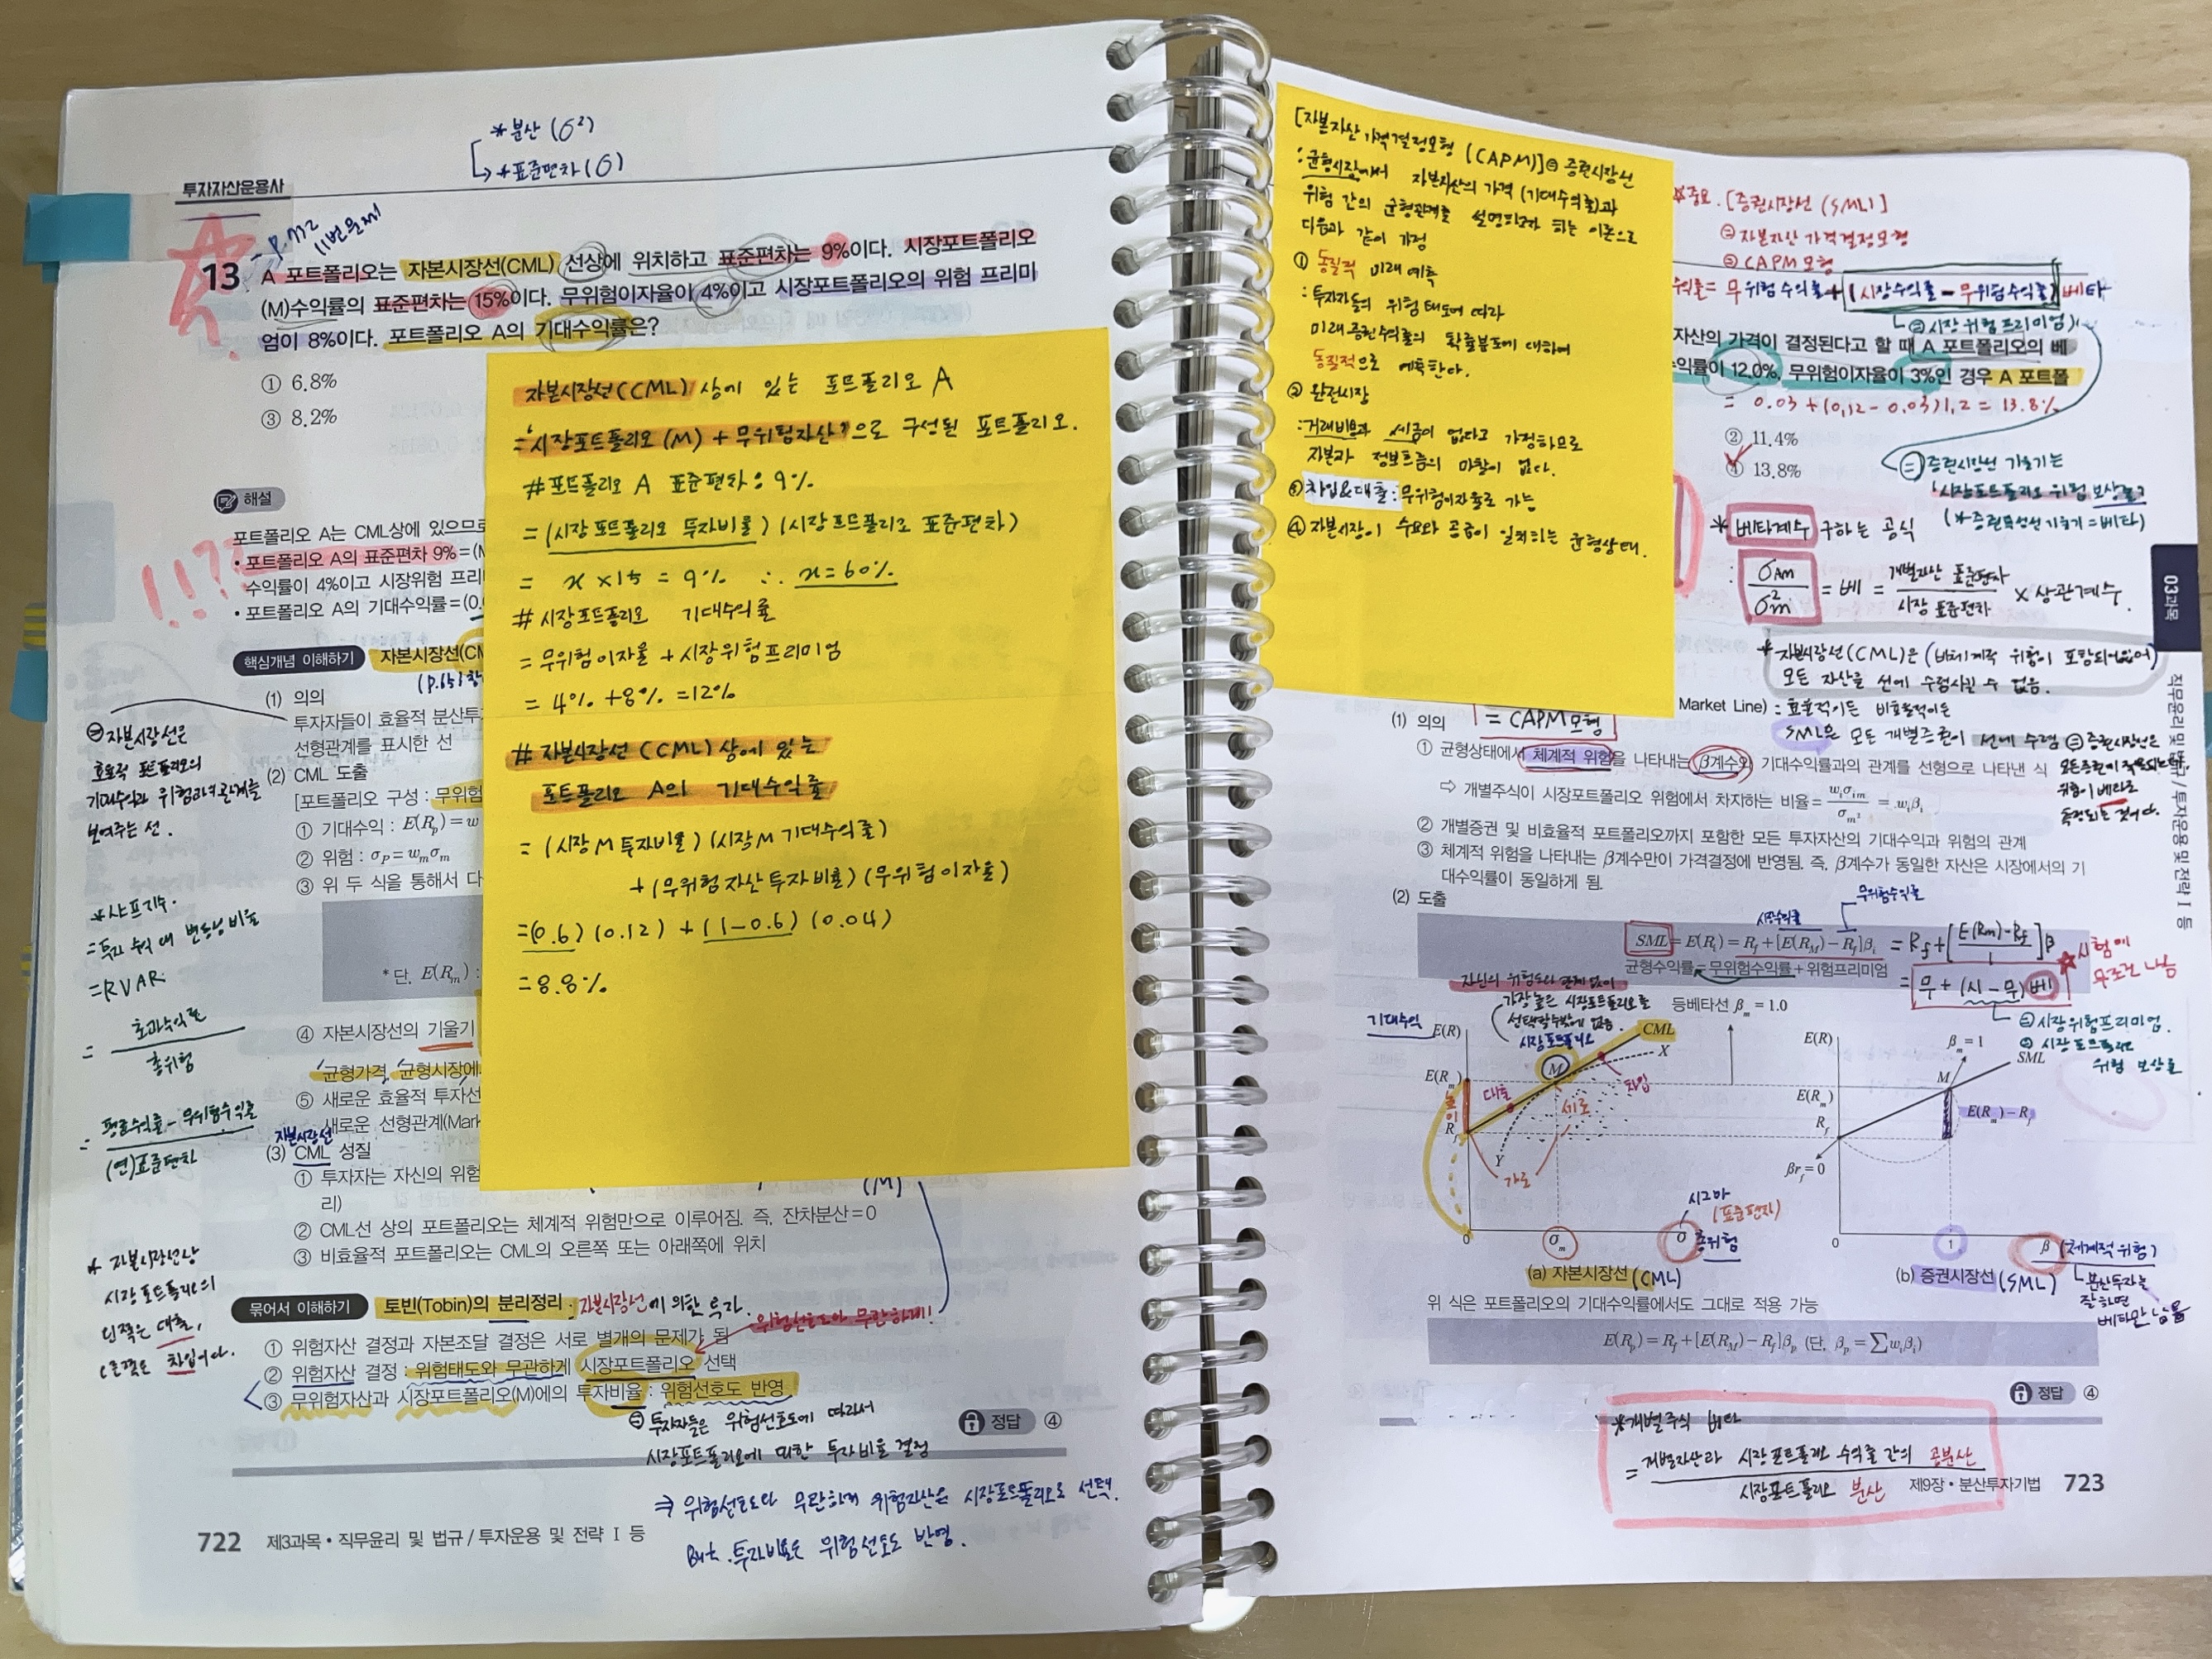 * 분산 (σ²)
→ * 표준편차 (σ)
투자자산운용사
11번문제
13 A 포트폴리오는 자본시장선(CML) 선상에 위치하고 표준편차는 9%이다. 시장포트폴리오
(M)수익률의 표준편차는 15%이다. 무위험이자율이 4%이고 시장포트폴리오의 위험 프리미
엄이 8%이다. 포트폴리오 A의 기대수익률은?
① 6.8%
③ 8.2%
해설
포트폴리오 A는 CML상에 있으므로
• 포트폴리오 A의 표준편차 9%=(M
수익률이 4%이고 시장위험 프리
• 포트폴리오 A의 기대수익률=(0.
!!??
핵심개념 이해하기 자본시장선(CM
(1) 의의
투자자들이 효율적 분산투
선형관계를 표시한 선
(2) CML 도출
[포트폴리오 구성 : 무위험
① 기대수익 : E(Rp)=w
② 위험 : σP=wmσm
③ 위 두 식을 통해서 다
* 단, E(Rm) :
④ 자본시장선의 기울기
균형가격, 균형시장에
⑤ 새로운 효율적 투자선
새로운 선형관계(Mark
자본시장선
(3) CML 성질
① 투자자는 자신의 위험
리)
(M)
② CML선 상의 포트폴리오는 체계적 위험만으로 이루어짐. 즉, 잔차분산=0
③ 비효율적 포트폴리오는 CML의 오른쪽 또는 아래쪽에 위치
묶어서 이해하기 토빈(Tobin)의 분리정리 : 자본시장선에 의한 투자.
위험선호도와 무관하게!
① 위험자산 결정과 자본조달 결정은 서로 별개의 문제가 됨
② 위험자산 결정 : 위험태도와 무관하게 시장포트폴리오 선택
③ 무위험자산과 시장포트폴리오(M)에의 투자비율 : 위험선호도 반영
정답 ④
⊜ 투자자들은 위험선호도에 따라서
시장포트폴리오에 대한 투자비율 결정
⇒ 위험선호도와 무관하게 위험자산은 시장포트폴리오로 선택.
But. 투자비율은 위험선호도 반영.
722 제3과목 • 직무윤리 및 법규 / 투자운용 및 전략 Ⅰ 등
⊜ 자본시장선은
효율적 포트폴리오의
기대수익과 위험과의 관계를
보여주는 선.
* 샤프지수.
= 투자 수익 대 변동성 비율
= RVAR
= 초과수익률
총위험
= 평균수익률 - 무위험수익률
(연)표준편차
* 자본시장선상
시장포트폴리오의
왼쪽은 대출,
오른쪽은 차입이다.
자본시장선(CML) 상에 있는 포트폴리오 A
= '시장포트폴리오 (M) + 무위험자산'으로 구성된 포트폴리오.
# 포트폴리오 A 표준편차 : 9%
= (시장 포트폴리오 투자비율) (시장포트폴리오 표준편차)
= x × 15 = 9% ∴ x = 60%
# 시장포트폴리오 기대수익률
= 무위험이자율 + 시장위험프리미엄
= 4% + 8% = 12%
# 자본시장선 (CML) 상에 있는
포트폴리오 A의 기대수익률
= (시장 M 투자비율) (시장 M 기대수익률)
+ (무위험자산 투자비율) (무위험이자율)
= (0.6) (0.12) + (1-0.6) (0.04)
= 8.8%
[자본자산 가격결정모형 (CAPM)] ⊜ 증권시장선
: 균형시장에서 자본자산의 가격 (기대수익률)과
위험 간의 균형관계를 설명하고자 하는 이론으로
다음과 같이 가정
① 동질적 미래예측
: 투자자들의 위험태도에 따라
미래증권수익률의 확률분포에 대하여
동질적으로 예측한다.
② 완전시장
: 거래비용과 세금이 없다고 가정하므로
자본과 정보흐름의 마찰이 없다.
③ 차입&대출 : 무위험이자율로 가능
④ 자본시장이 수요와 공급이 일치하는 균형상태.
중요. [증권시장선 (SML)]
⊜ 자본자산 가격결정모형
⊜ CAPM 모형
익률= 무위험수익률 + (시장수익률 - 무위험수익률) 베타
(⊜ 시장위험프리미엄)
자산의 가격이 결정된다고 할 때 A 포트폴리오의 베
익률이 12.0%, 무위험이자율이 3%인 경우 A 포트폴
= 0.03 + (0.12 - 0.03)1.2 = 13.8%
② 11.4%
④ 13.8%
⊜ 증권시장선 기울기는
'시장포트폴리오 위험 보상률'
(* 증권특성선 기울기 = 베타)
* 베타계수 구하는 공식
: σAm / σ²m = 베 = 개별자산 표준편차 / 시장 표준편차 × 상관계수.
* 자본시장선(CML)은 (비체계적 위험이 포함되어있어)
모든 자산을 선에 수렴시킬 수 없음.
Market Line) : 효율적이든 비효율적이든
SML은 모든 개별증권이 선에 수렴 ⊜ 증권시장선은
위험이 베타로
측정되는 것이다.
(1) 의의 = CAPM모형
① 균형상태에서 체계적 위험을 나타내는 β계수와 기대수익률과의 관계를 선형으로 나타낸 식
⇨ 개별주식이 시장포트폴리오 위험에서 차지하는 비율 = wiσim / σm² = wiβi
② 개별증권 및 비효율적 포트폴리오까지 포함한 모든 투자자산의 기대수익과 위험의 관계
③ 체계적 위험을 나타내는 β계수만이 가격결정에 반영됨. 즉, β계수가 동일한 자산은 시장에서의 기
대수익률이 동일하게 됨.
(2) 도출
시장수익률 무위험수익률
SML = E(Ri) = Rf + [E(RM) - Rf]βi = Rf + [E(Rm)-Rf / 1]β
균형수익률 = 무위험수익률 + 위험프리미엄
= 무 + (시 - 무)베
시험에
무조건 나옴
⊜ 시장위험프리미엄.
⊜ 시장포트폴리오
위험 보상률
자신의 위험도와 관계없이
가장 높은 시장포트폴리오를
선택할수밖에 없음.
시장포트폴리오
등베타선 βm=1.0
기대수익 E(R)
CML
X
M
E(Rm)
대출
차입
세로
높이
Rf
Y
가로
시그마
(표준편차)
0
σm
σ 총위험
(a) 자본시장선 (CML)
E(R)
βm=1
SML
M
E(Rm)
E(Rm)-Rf
Rf
βrf=0
0
1
β (체계적위험)
분산투자를
잘하면
베타만 남음
(b) 증권시장선 (SML)
위 식은 포트폴리오의 기대수익률에서도 그대로 적용 가능
E(Rp)=Rf+[E(RM)-Rf]βp (단, βp=∑wiβi)
정답 ④
* 개별주식 베타
= 개별자산과 시장포트폴리오 수익률 간의 공분산
시장포트폴리오 분산
제9장 • 분산투자기법 723
03과목
직무윤리 및 법규 / 투자운용 및 전략 Ⅰ 등